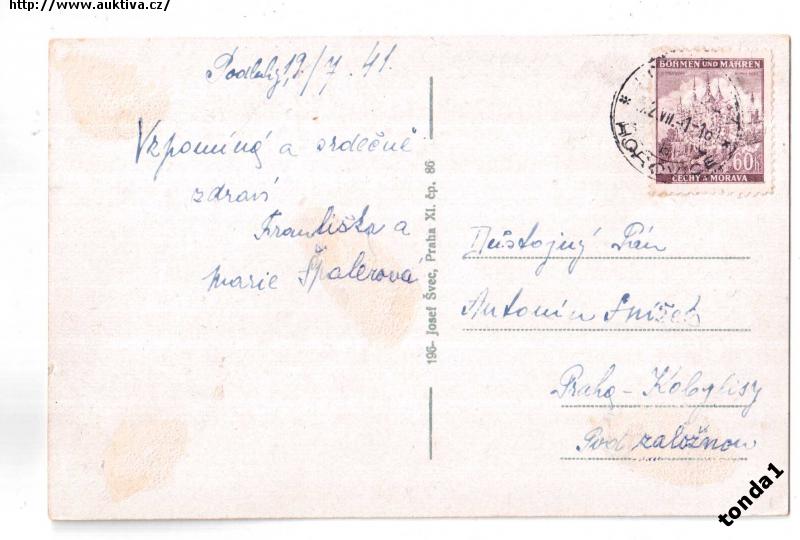 http://www.auktiva.cz/
Podluhy, 12/7. 41.
Vzpomíná a srdečně
zdraví
Františka a
Marie Špalerová
196- Josef Švec, Praha XI. čp. 86
BÖHMEN UND MÄHREN
60h
ČECHY A MORAVA
HOŘOVICE
Důstojný Pán
Antonín Snížek
Praha - Kobylisy
Pod záložnou
tonda1